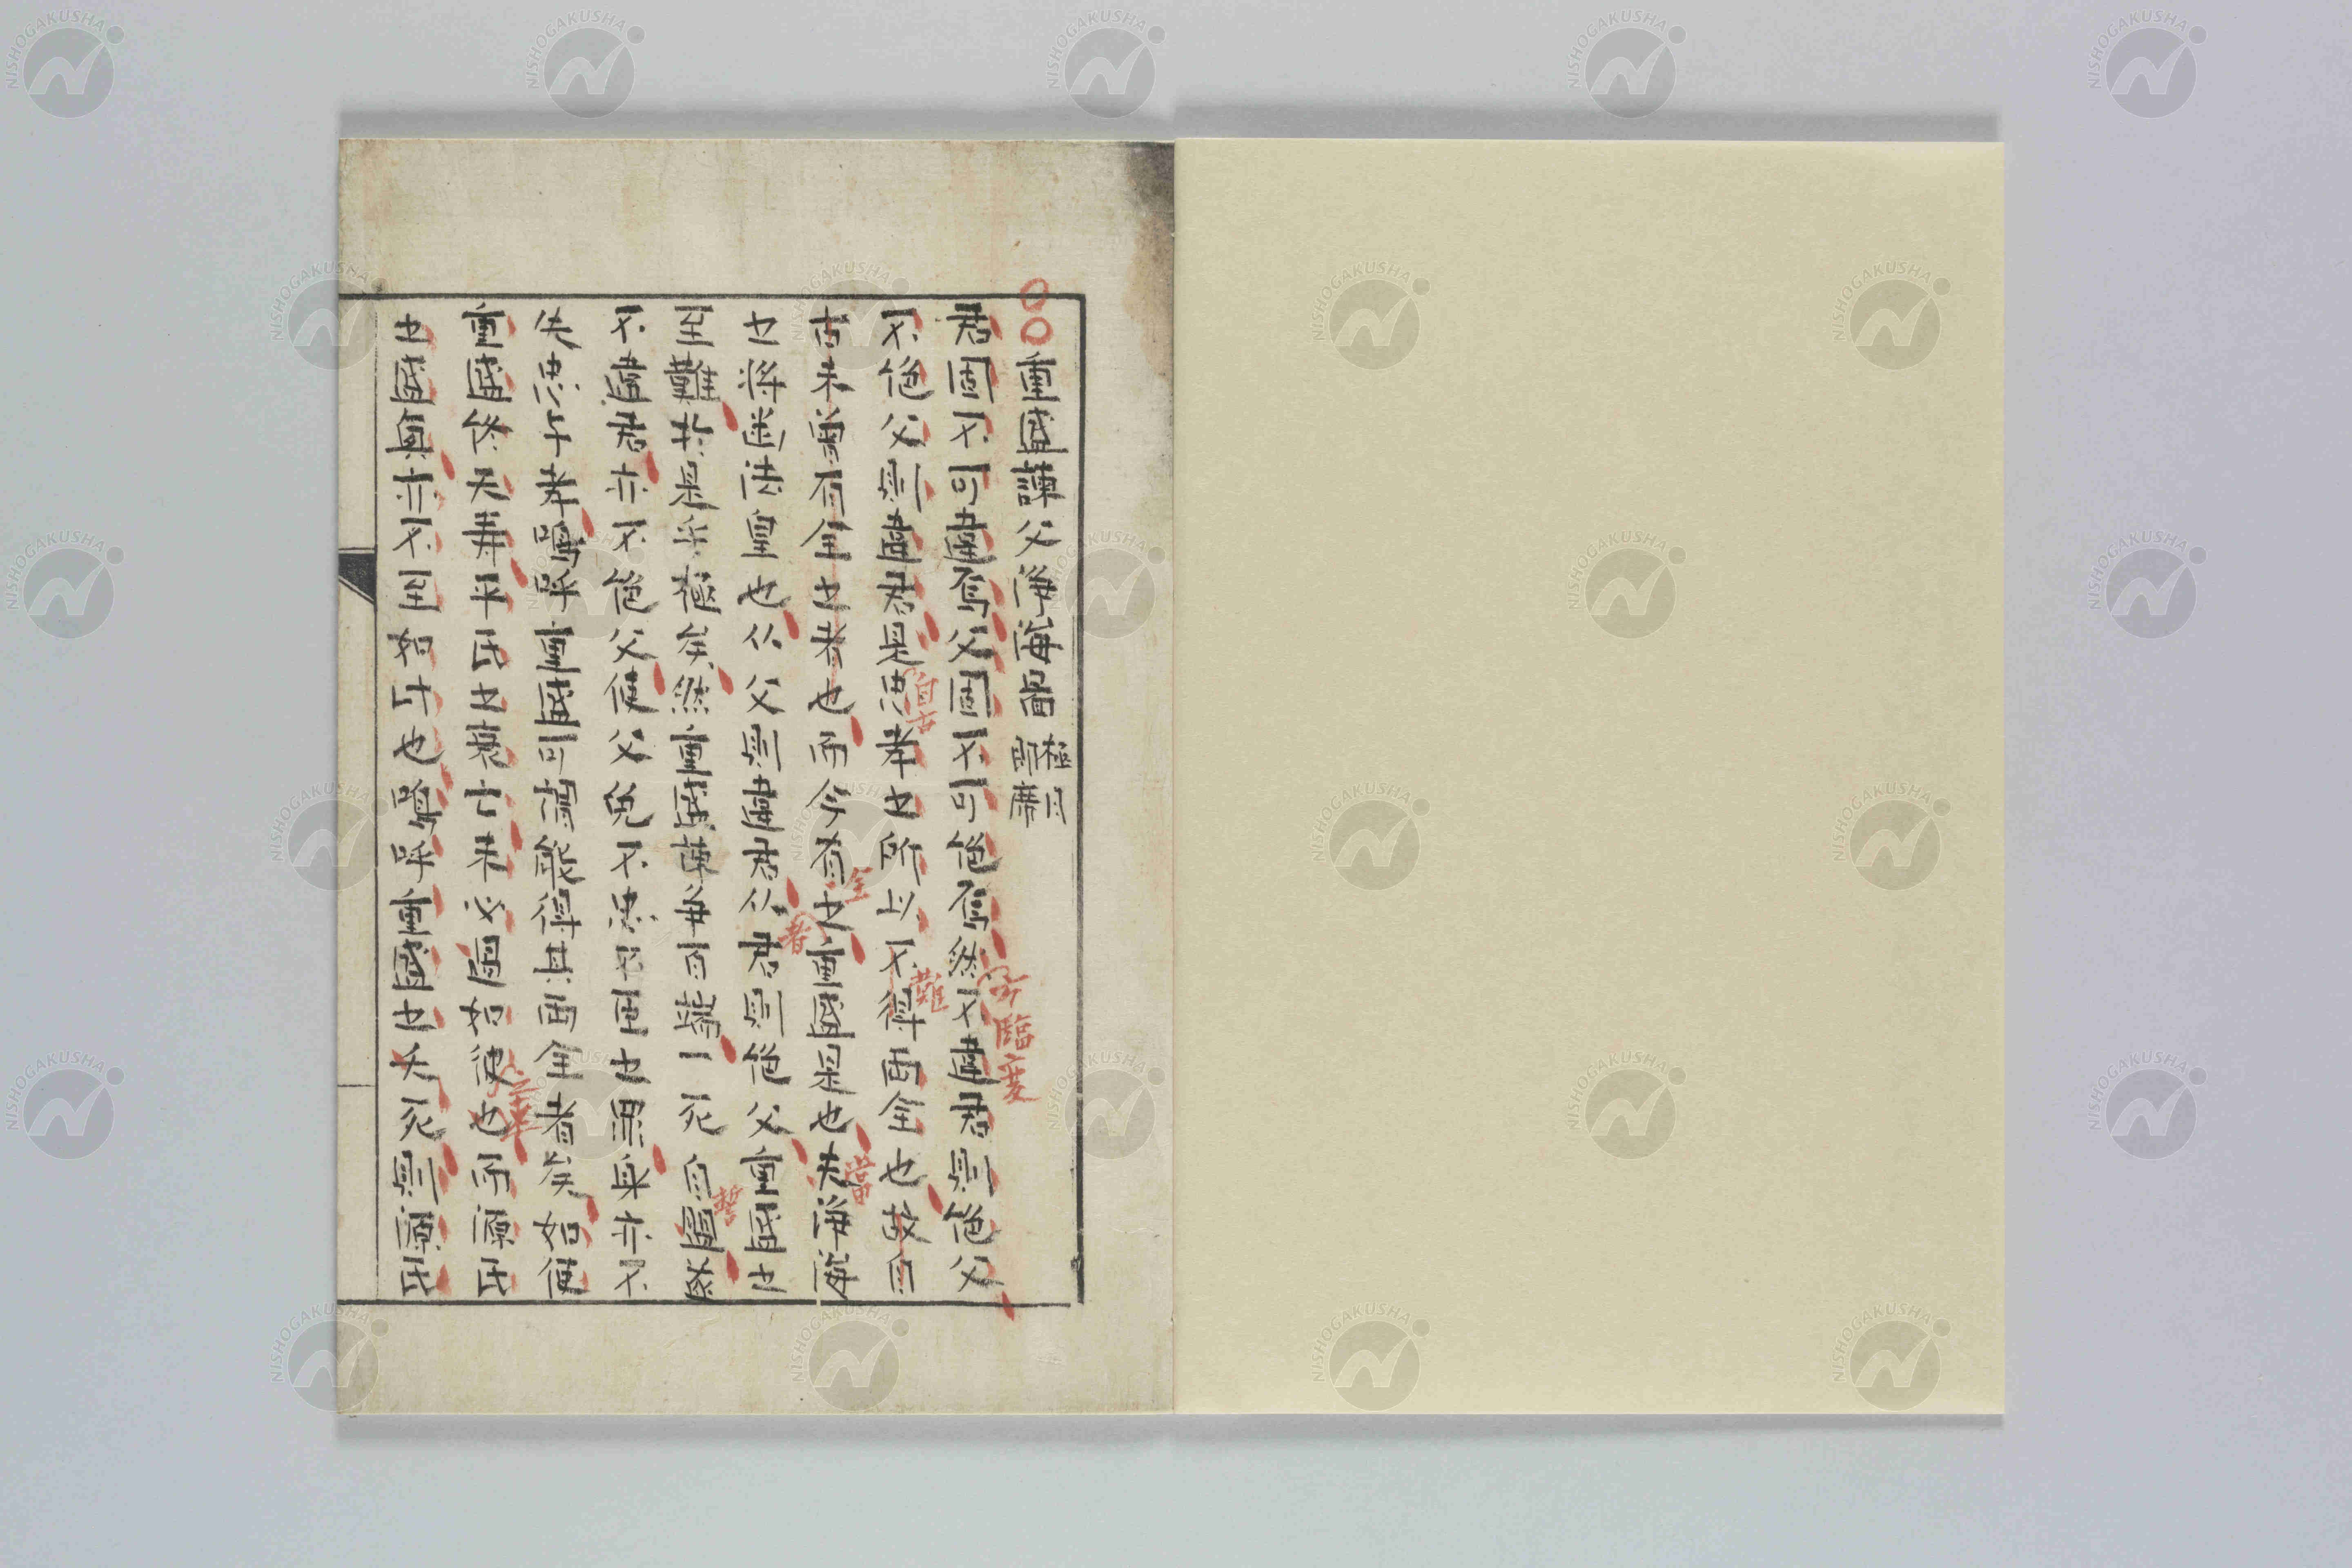 重盛諫父浄海圖 極月即席
君固不可違焉父固不可絶焉然不違君則絶父
不絶父則違君是忠孝之所以不得両全也故自
古未曽有全之者也而今有之重盛是也夫浄海
之将幽法皇也从父則違君从君則絶父重盛之
至難於是乎極矣然重盛諫争百端一死自盟遂
不違君亦不絶父使父免不忠不臣之罪身亦不
失忠与孝嗚呼重盛可謂能得其両全者矣如使
重盛終天寿平氏之衰亡未必過如彼也而源氏
之盛眞亦不至如此也嗚呼重盛之夭死則源氏
字臨変
自古
難
全
者
當
誓
NISHOGAKUSHA